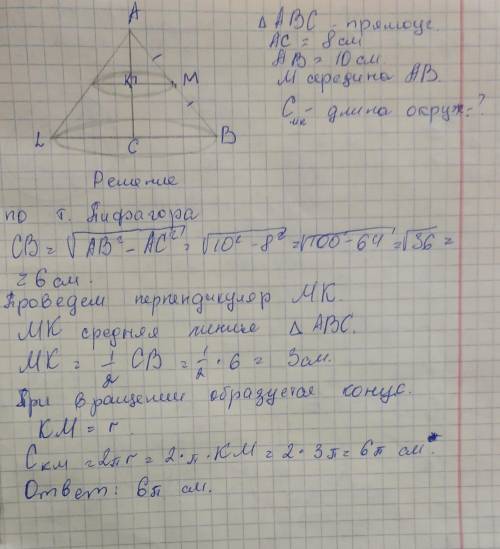 A
K
M
L
C
B
Δ ABC - прямоуг.
AC = 8 см
AB = 10 см
M середина AB.
C MK - длина окруж-?
Решение
по т. Пифагора
CB = √AB² - AC² = √10² - 8² = √100 - 64 = √36 =
= 6 см.
Проведем перпендикуляр MK.
MK средняя линия Δ ABC.
MK = 1/2 CB = 1/2 · 6 = 3 см.
При вращении образуется конус.
KM = r.
C км = 2πr = 2·π·KM = 2·3π = 6π см.
Ответ: 6π см.